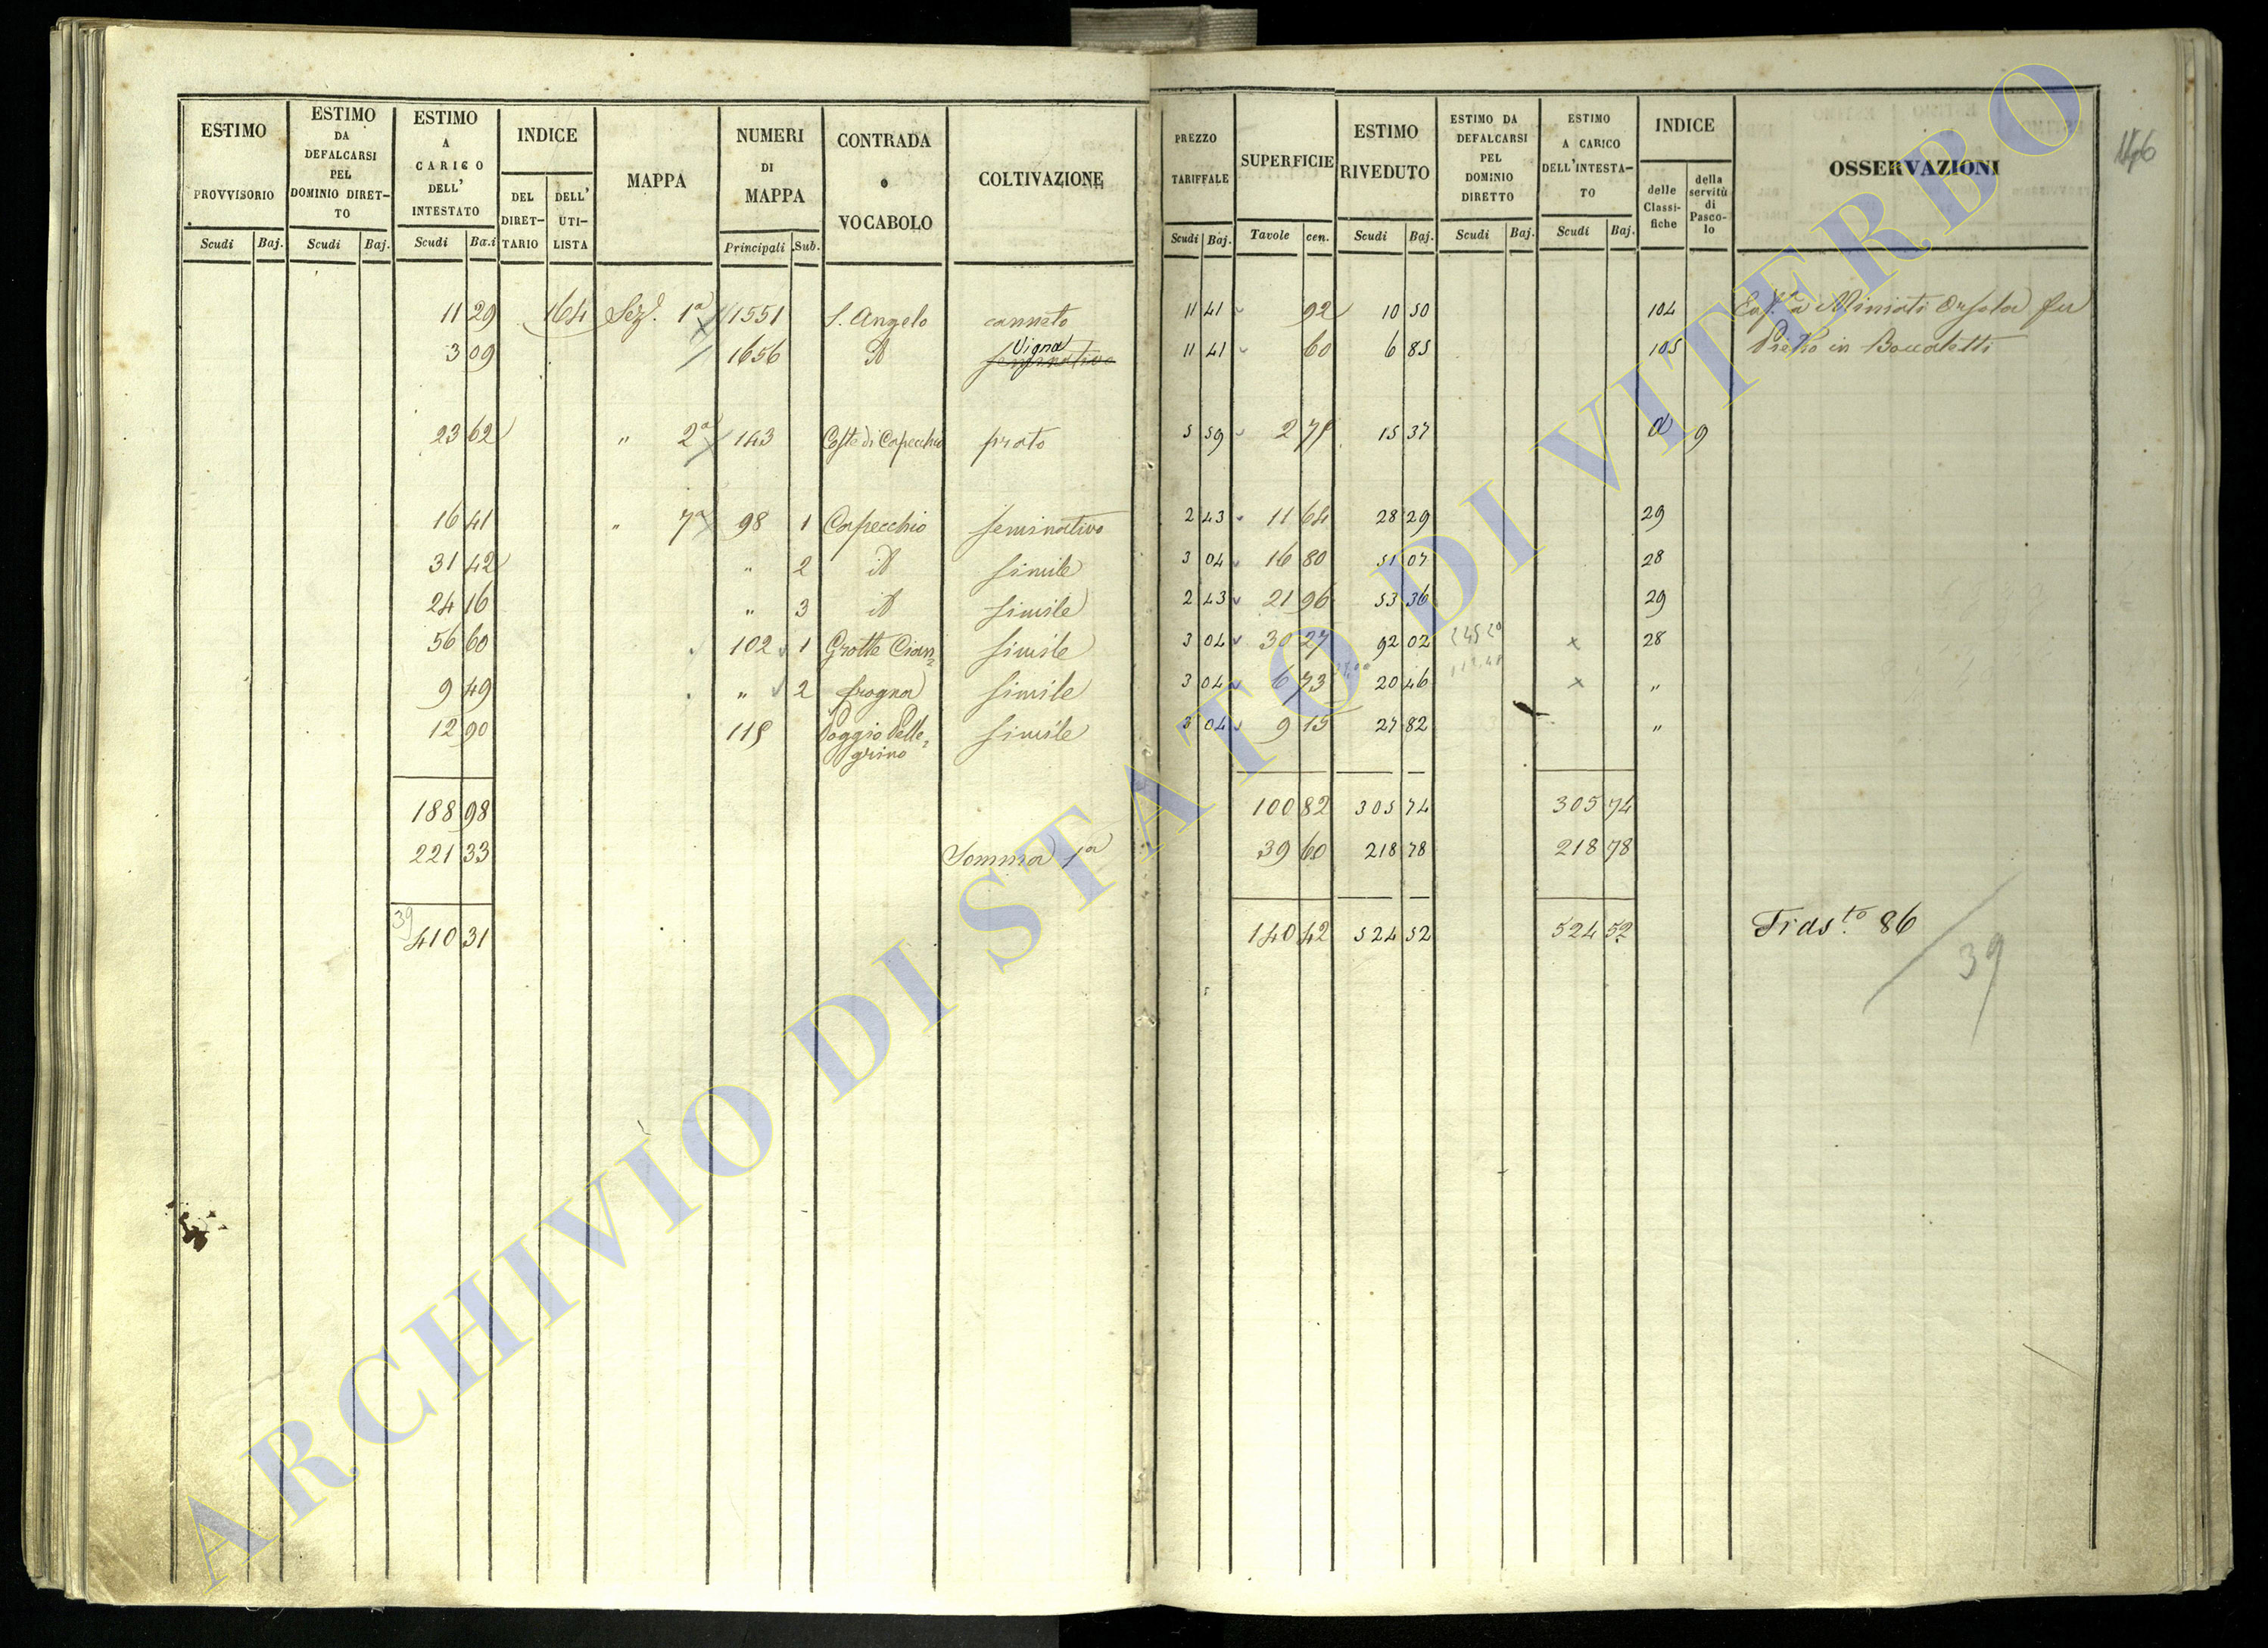 ESTIMO PROVVISORIO Scudi Baj.
ESTIMO DA DEFALCARSI PEL DOMINIO DIRETTO Scudi Baj.
ESTIMO A CARICO DELL' INTESTATO Scudi Ba.i
INDICE DEL DIRETTARIO DELL' UTILISTA
MAPPA
NUMERI DI MAPPA Principali Sub.
CONTRADA o VOCABOLO
COLTIVAZIONE
PREZZO TARIFFALE Scudi Baj.
SUPERFICIE Tavole cen.
ESTIMO RIVEDUTO Scudi Baj.
ESTIMO DA DEFALCARSI PEL DOMINIO DIRETTO Scudi Baj.
ESTIMO A CARICO DELL'INTESTATO Scudi Baj.
INDICE delle Classifiche della servitù di Pascolo
OSSERVAZIONI
11 29 164 Sez. 1a 1551 S. Angelo canneto 11 41 92 10 50 104 Miniati Orsola fu
3 09 1656 id Vigna seminativo 11 41 60 6 85 105 Pietro in Boccaletti
23 62 " 2a 143 Coste di Capecchio prato 5 59 2 75 15 37 d 9
16 41 " 7a 98 1 Capecchio seminativo 2 43 11 64 28 29 29
31 42 " 2 id simile 3 04 16 80 51 07 28
24 16 " 3 id simile 2 43 21 96 53 36 29
56 60 102 1 Grotte Cian= simile 3 04 30 27 92 02 x 28
9 49 " 2 frogna simile 3 04 6 73 20 46 x "
12 90 115 Poggio Pelle= simile 3 04 9 15 27 82 "
grino
188 98 100 82 305 74 305 74
221 33 Somma 1a 39 60 218 78 218 78
39 410 31 140 42 524 52 524 52 Trasto. 86
39
ARCHIVIO DI STATO DI VITERBO